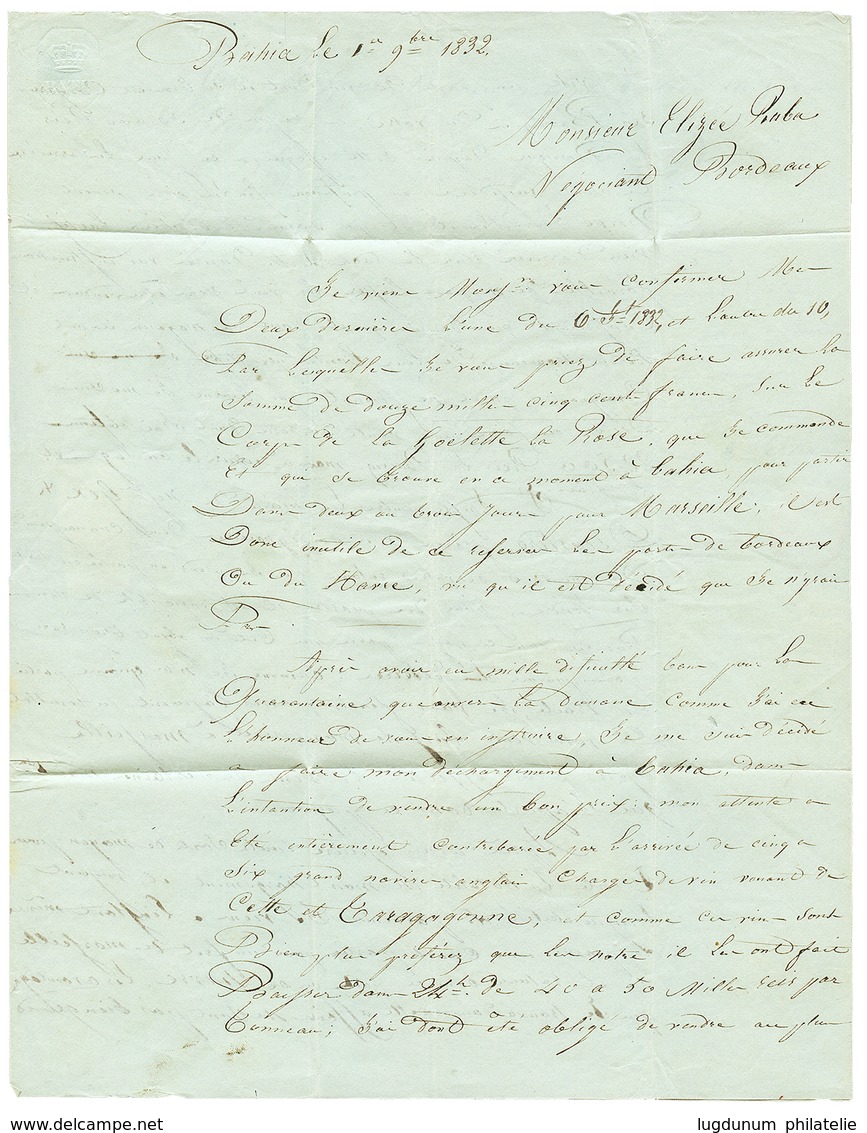 Bahia le 1er 9bre 1832.
Monsieur Elizée Raba
Négociant Bordeaux
Je viens Monsr. vous confirmer Mes
Deux dernières l'une du 6 et l'autre du 10,
Par lesquelles Je vous priez de faire assurer la
somme de douze mille cinq cent francs, sur le
Corps de la Goëlette la Rose, que Je commande
Et qui se trouve en ce moment à bahia, pour partir
Dans deux ou trois jours pour Marseille, il est
Donc inutile de ce reserver les ports de bordeaux
Ou du Havre, vu qu'il est décidé que Je n'yrais
Pas.
Après avoir eu mille dificulté tant pour la
Quarantaine qu'envers la douane comme J'ai eu
L'honneur de vous en instruire, Je me suis décidé
a faire mon déchargement à bahia, dans
L'intention de vendre un bon prix: mon attente a
Eté entièrement contrbariée par l'arrivée de cinq a
six grand navires anglais chargé de vin venant de
Cette et Tarragagonne, et comme ces vins sont
Bien plus préferez que les notre il les ont fait
Baisser dans 24h. de 40 a 50 Mille reis par
tonneau; J'ai dont été obligé de vendre au plus
lugdunum philatelie
www.delcampe.net